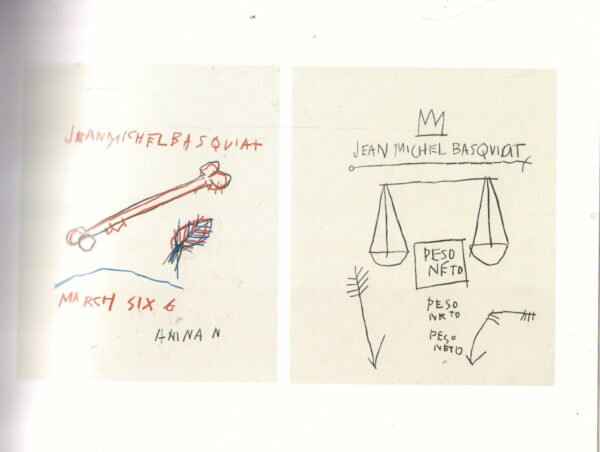 JEANMICHELBASQUIAT
MARCH SIX 6
ANINA N
JEAN MICHEL BASQUIAT
PESO
NETO
PESO
NETO
PESO
NETO